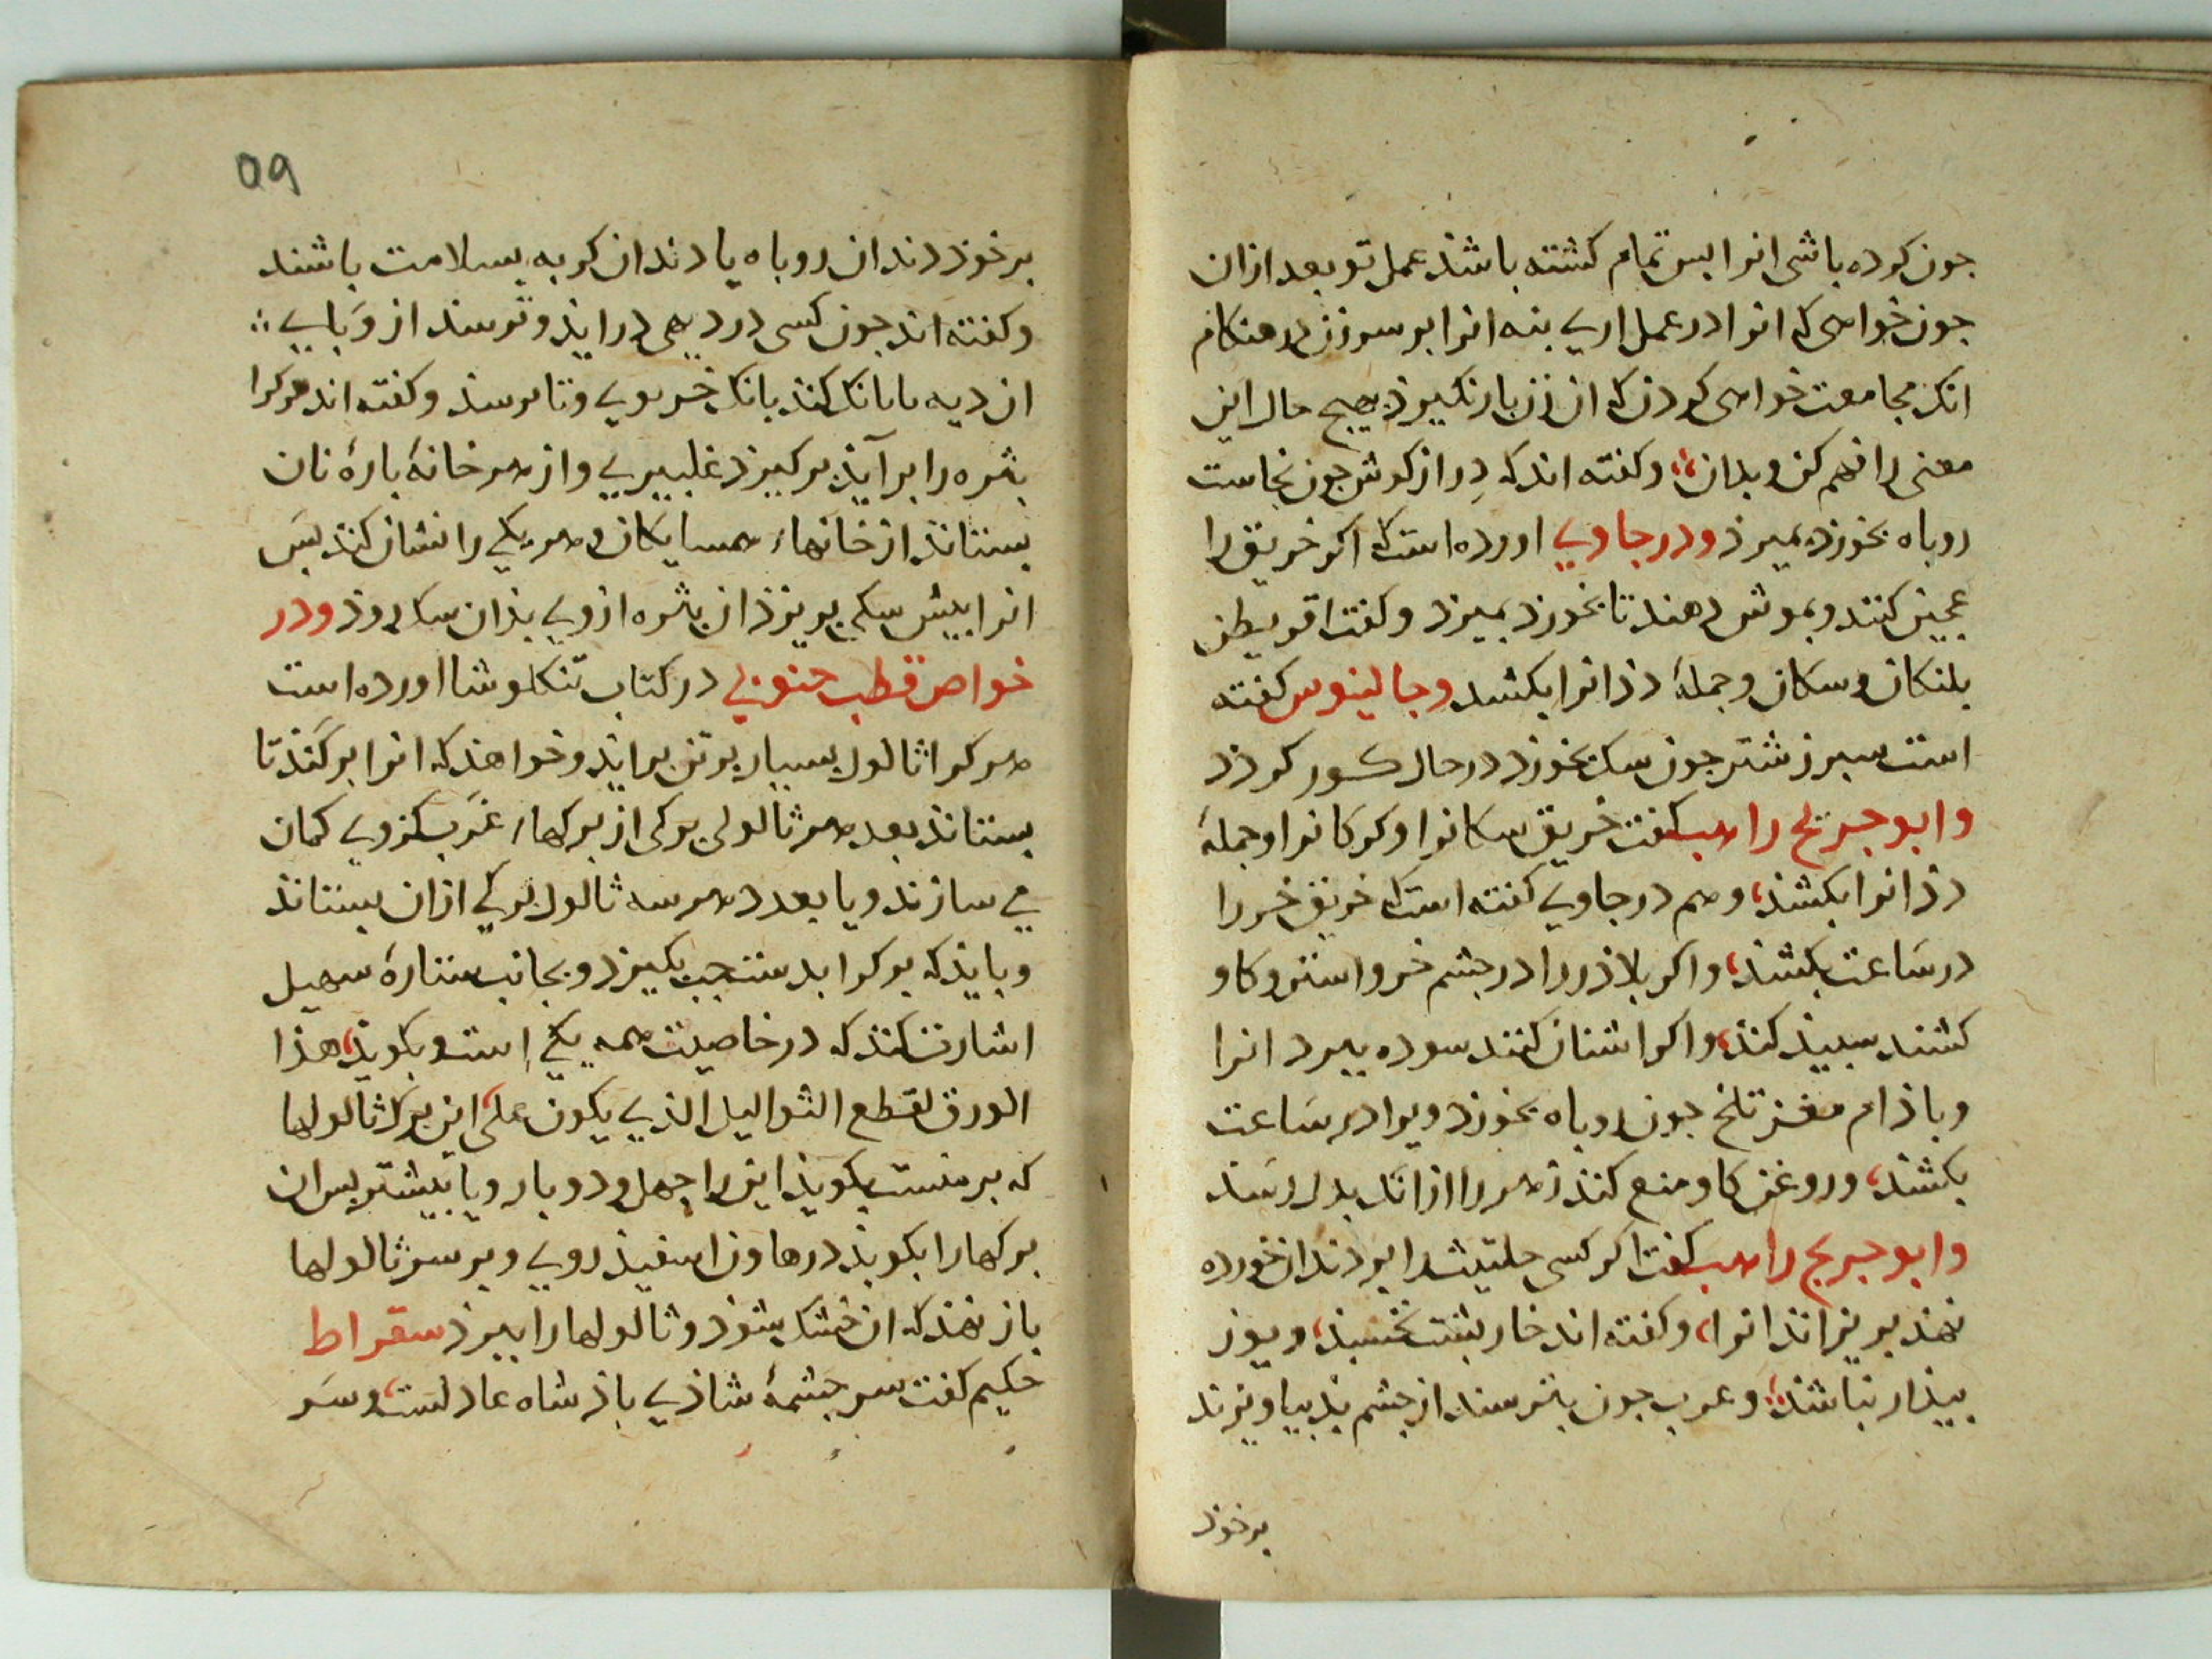 جون کرده باشی انرا بس تمام کشته باشد عمل تو بعد ازان
جون خواهی که انرا در عمل اری بنه انرا بر سر زن در هنکام
انک مجامعت خواهی کردن که ان زن بار نکیرذ بهیج حال این
معنی را فهم کن وبدان؛ وکفته اند که دراز کوش جون نجاست
روباه بخورد بمیرذ ودر جاوی اورده است که اکر خربق را
عجین کنند وبموش دهند تا بخورد بمیرد وکفت اقریطن
بلنکان وسکان وجملهٔ ددانرا بکشد وجالینوس کفته
است سبرز شتر جون سک بخورد در حال کور کردد
وابو جریج راهب کفت خربق سکانرا وکرکانرا وجملهٔ
ددانرا بکشد، وهم در جاوی کفته است که خربق خر را
در ساعت بکشد، واکر بلاذر را در جشم خر واستر وکاو
کشند سبیذ کند، واکر اشنان کنند سوده ببرد انرا
وباذام مغز تلخ جون روباه بخورد ویرا در ساعت
بکشد، وروغن کاو منع کند زهر را ازانک بدل رسد
وابو جریج راهب کفت اکر کسی حلتیت را بر دندان خورده
نهد بریزاند انرا، وکفته اند خار بشت نخسبذ، ویوز
بیذار نباشد، وعرب جون بترسند از جشم بذ بیاویزند
برخوذ
09
برخوذ دندان روباه یا دندان کربه بسلامت باشند
وکفته اند جون کسی در دیهی درایذ وترسد از وبایی
ان دیه بانک کند بانک خر بوی ونترسد وکفته اند هرکرا
بثره را برآید برکیرد غلبیری واز هر خانهٔ بارهٔ نان
بستاند از خانهاء همسایکان وهر یکی را نشان کند بس
انرا بیش سکی بریزد ان بثره ازوی بذان سک روذ ودر
خواص قطب جنوبی در کتاب تنکلوشا اورده است
هر کرا ثالول بسیار بر تن برایذ وخواهد که انرا برکند تا
بستاند بعدد هر ثالولی برکی از برکهاء غرب کزوی کمان
می سازند ویا بعدد هر سه ثالول برکی ازان بستاند
وبایذ که برک را بدست جب بکیرد وبجانب ستارهٔ سهیل
اشارت کند که در خاصیت همه یکی است وبکویذ، هذا
الورق لقطع الثوالیل الذی یکون علی، این برک ثالولها
که بر منست بکویذ این را جهل ودو بار ویا بیشتر بس ان
برکها را بکوبذ در هاون اسفیذ روی وبر سر ثالولها
باز نهد که ان خشک شود وثالولها را ببرد سقراط
حکیم کفت سر جشمهٔ شاذی باذشاه عادلست، وسر